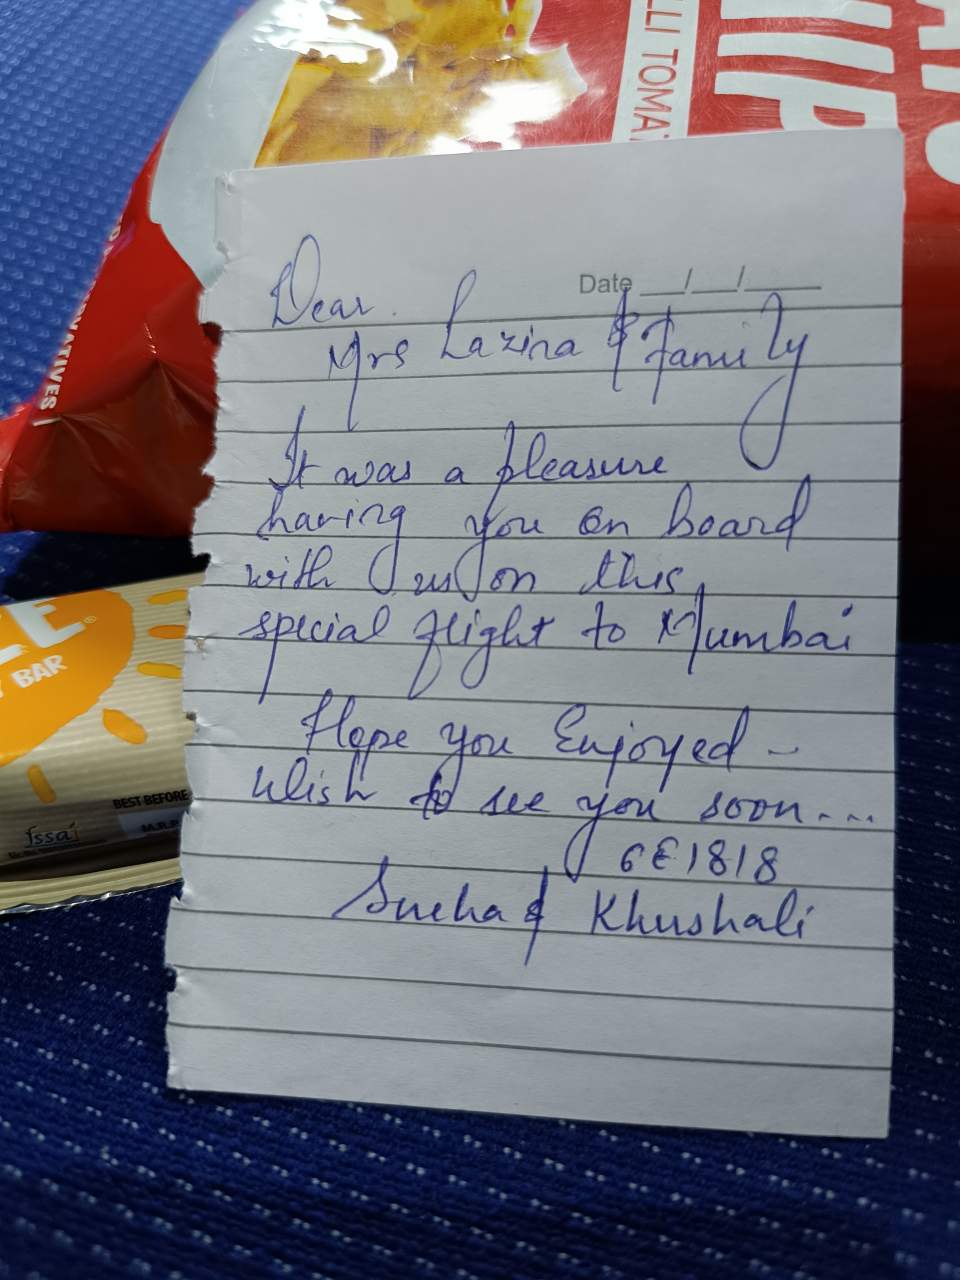 LLI TOMA
HIP
Date __/__/____
Dear.
Mrs Lazina & Family
It was a pleasure
having you on board
with us on this
special flight to Mumbai
Hope you Enjoyed -
Wish to see you soon....
6E1818
& Khushali
BAR
BEST BEFORE
fssai